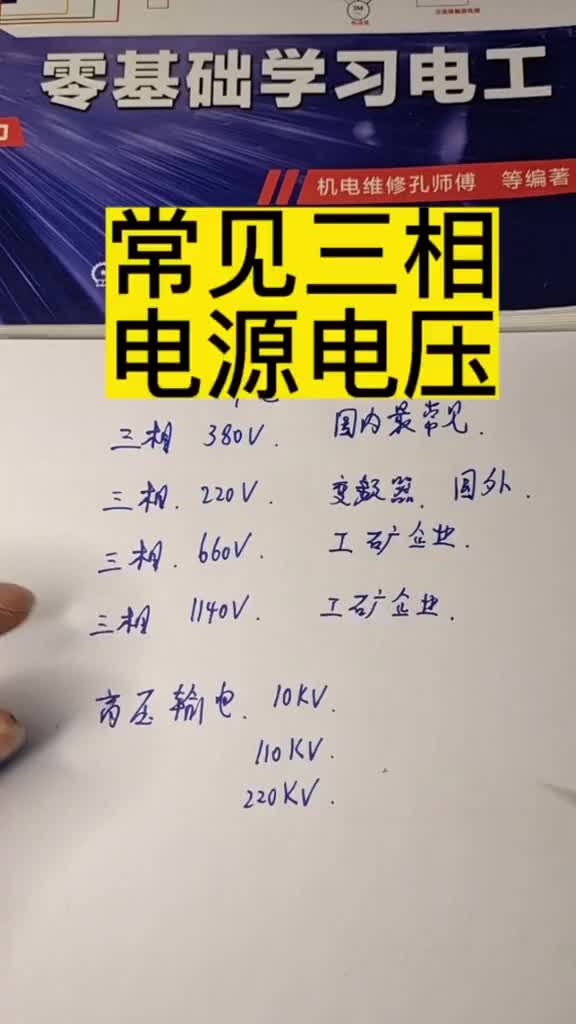 零基础学习电工
机电维修孔师傅 等编著
常见三相
电源电压
三相 380V. 国内最常见.
三相. 220V. 变频器. 国外.
三相. 660V. 工矿企业.
三相 1140V. 工矿企业.
高压输电. 10KV.
110KV.
220KV.